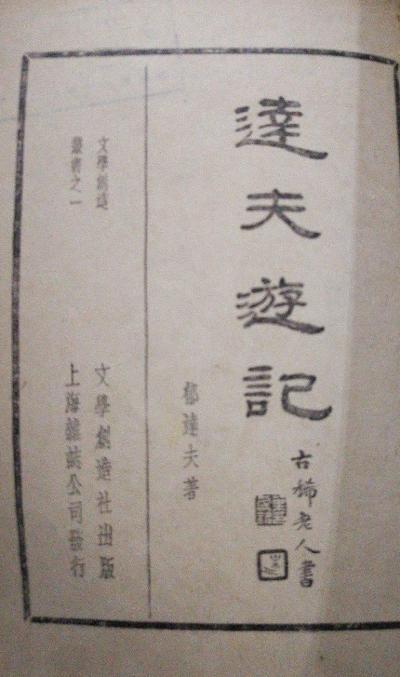 達夫遊記
古稀老人書
郁達夫著
文學創造
叢書之一
文學創造社出版
上海雜誌公司發行